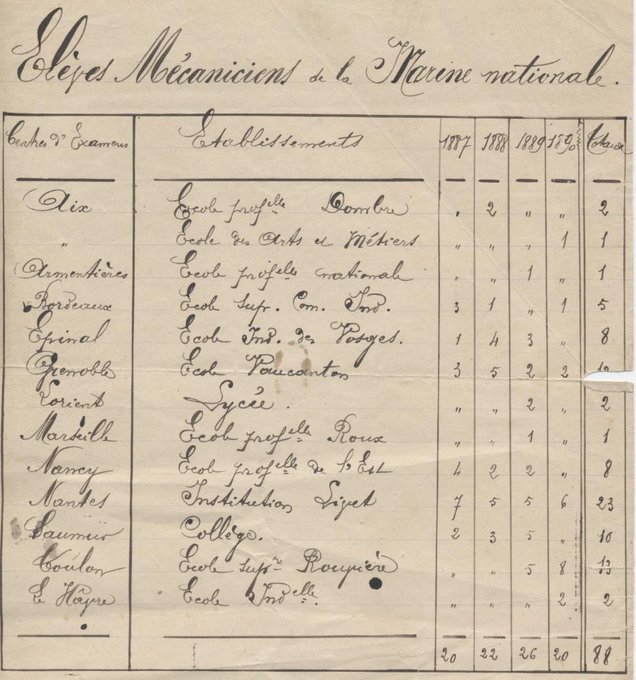 Elèves Mécaniciens de la Marine nationale.
Centres d'Examens Etablissements 1887 1888 1889 1890 Totaux
Aix Ecole prof.elle Dombre " 2 " " 2
" Ecole des Arts et Métiers " " " 1 1
Armentières Ecole prof.elle nationale " " 1 " 1
Bordeaux Ecole Sup. Com. Ind. 3 1 " 1 5
Epinal Ecole Ind. des Vosges. 1 4 3 " 8
Grenoble Ecole Vaucanson 3 5 2 2 12
Lorient Lycée. " " 2 " 2
Marseille Ecole prof.elle Roux " " 1 " 1
Nancy Ecole prof.elle de l'Est 4 2 2 " 8
Nantes Institution Livet 7 5 5 6 23
Saumur Collège. 2 3 5 " 10
Toulon Ecole sup.re Rouvière " " 5 8 13
Le Hâvre Ecole Ind.elle. " " " 2 2
20 22 26 20 88